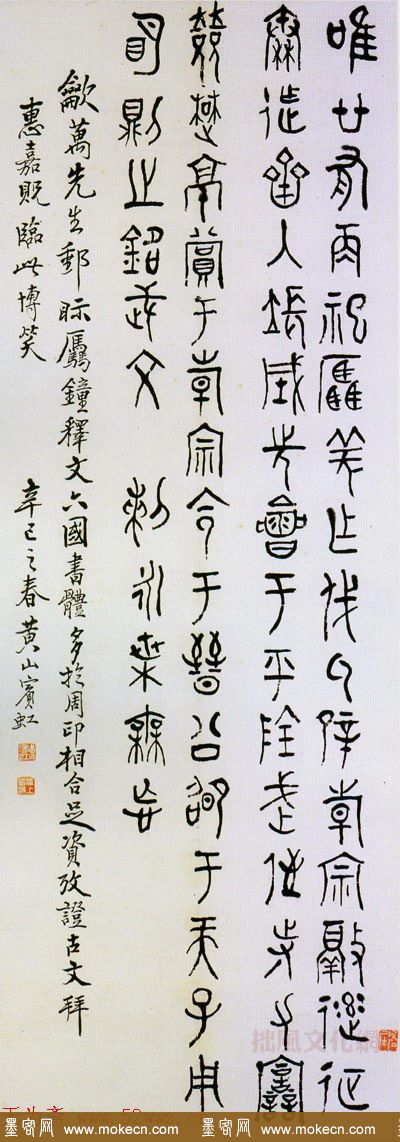 唯廿又再祀驫羌乍伐氒辟倝宗敲征
秦迮齊入張城先會于平陰武侄寺力
敚楚京賞于倝宗令于晉公邵于天子用
明則之銘武文 剌永枼毋忘
歙萬先生郵眎驫鐘釋文六國書體多於周印相合足資攷證古文拜
惠嘉貺臨此博笑
辛巳之春黃山賓虹
拙風文化網
墨客网 www.mokecn.com 墨客网 www.mokecn.com